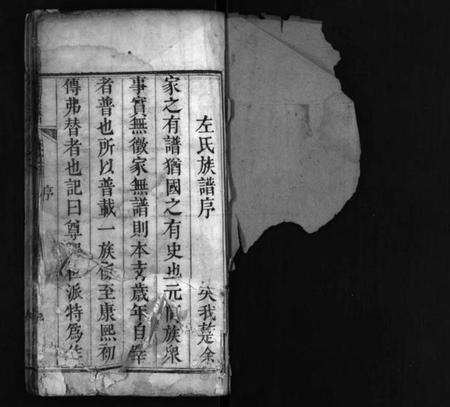 左氏族譜序
我楚余
家之有譜猶國之有史也元
族眾
事實無徵家無譜則本支歲年自
者普也所以普載一族
至康熙初
傳弗替者也記曰尊
派特為
序